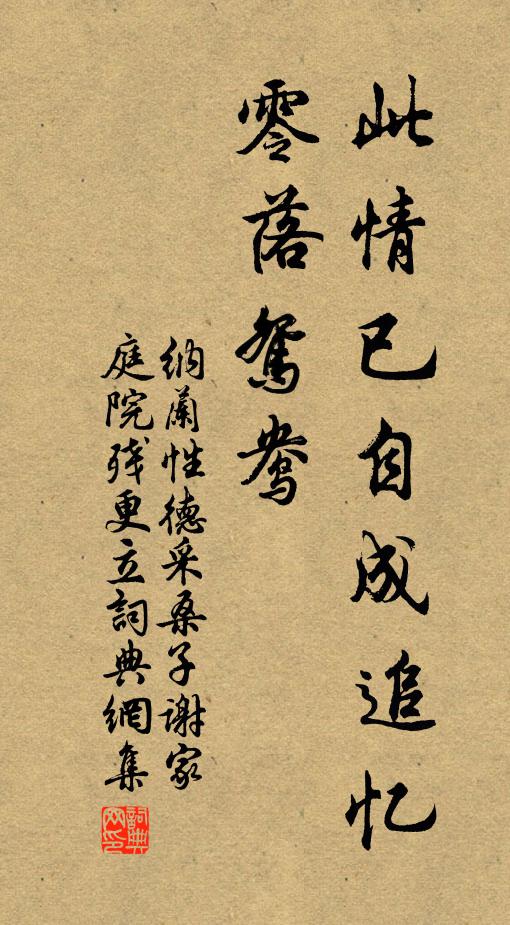 此情已自成追忆
零落鸳鸯
纳蘭性德采桑子谢家
庭院残更立詞典網集
詞典网印